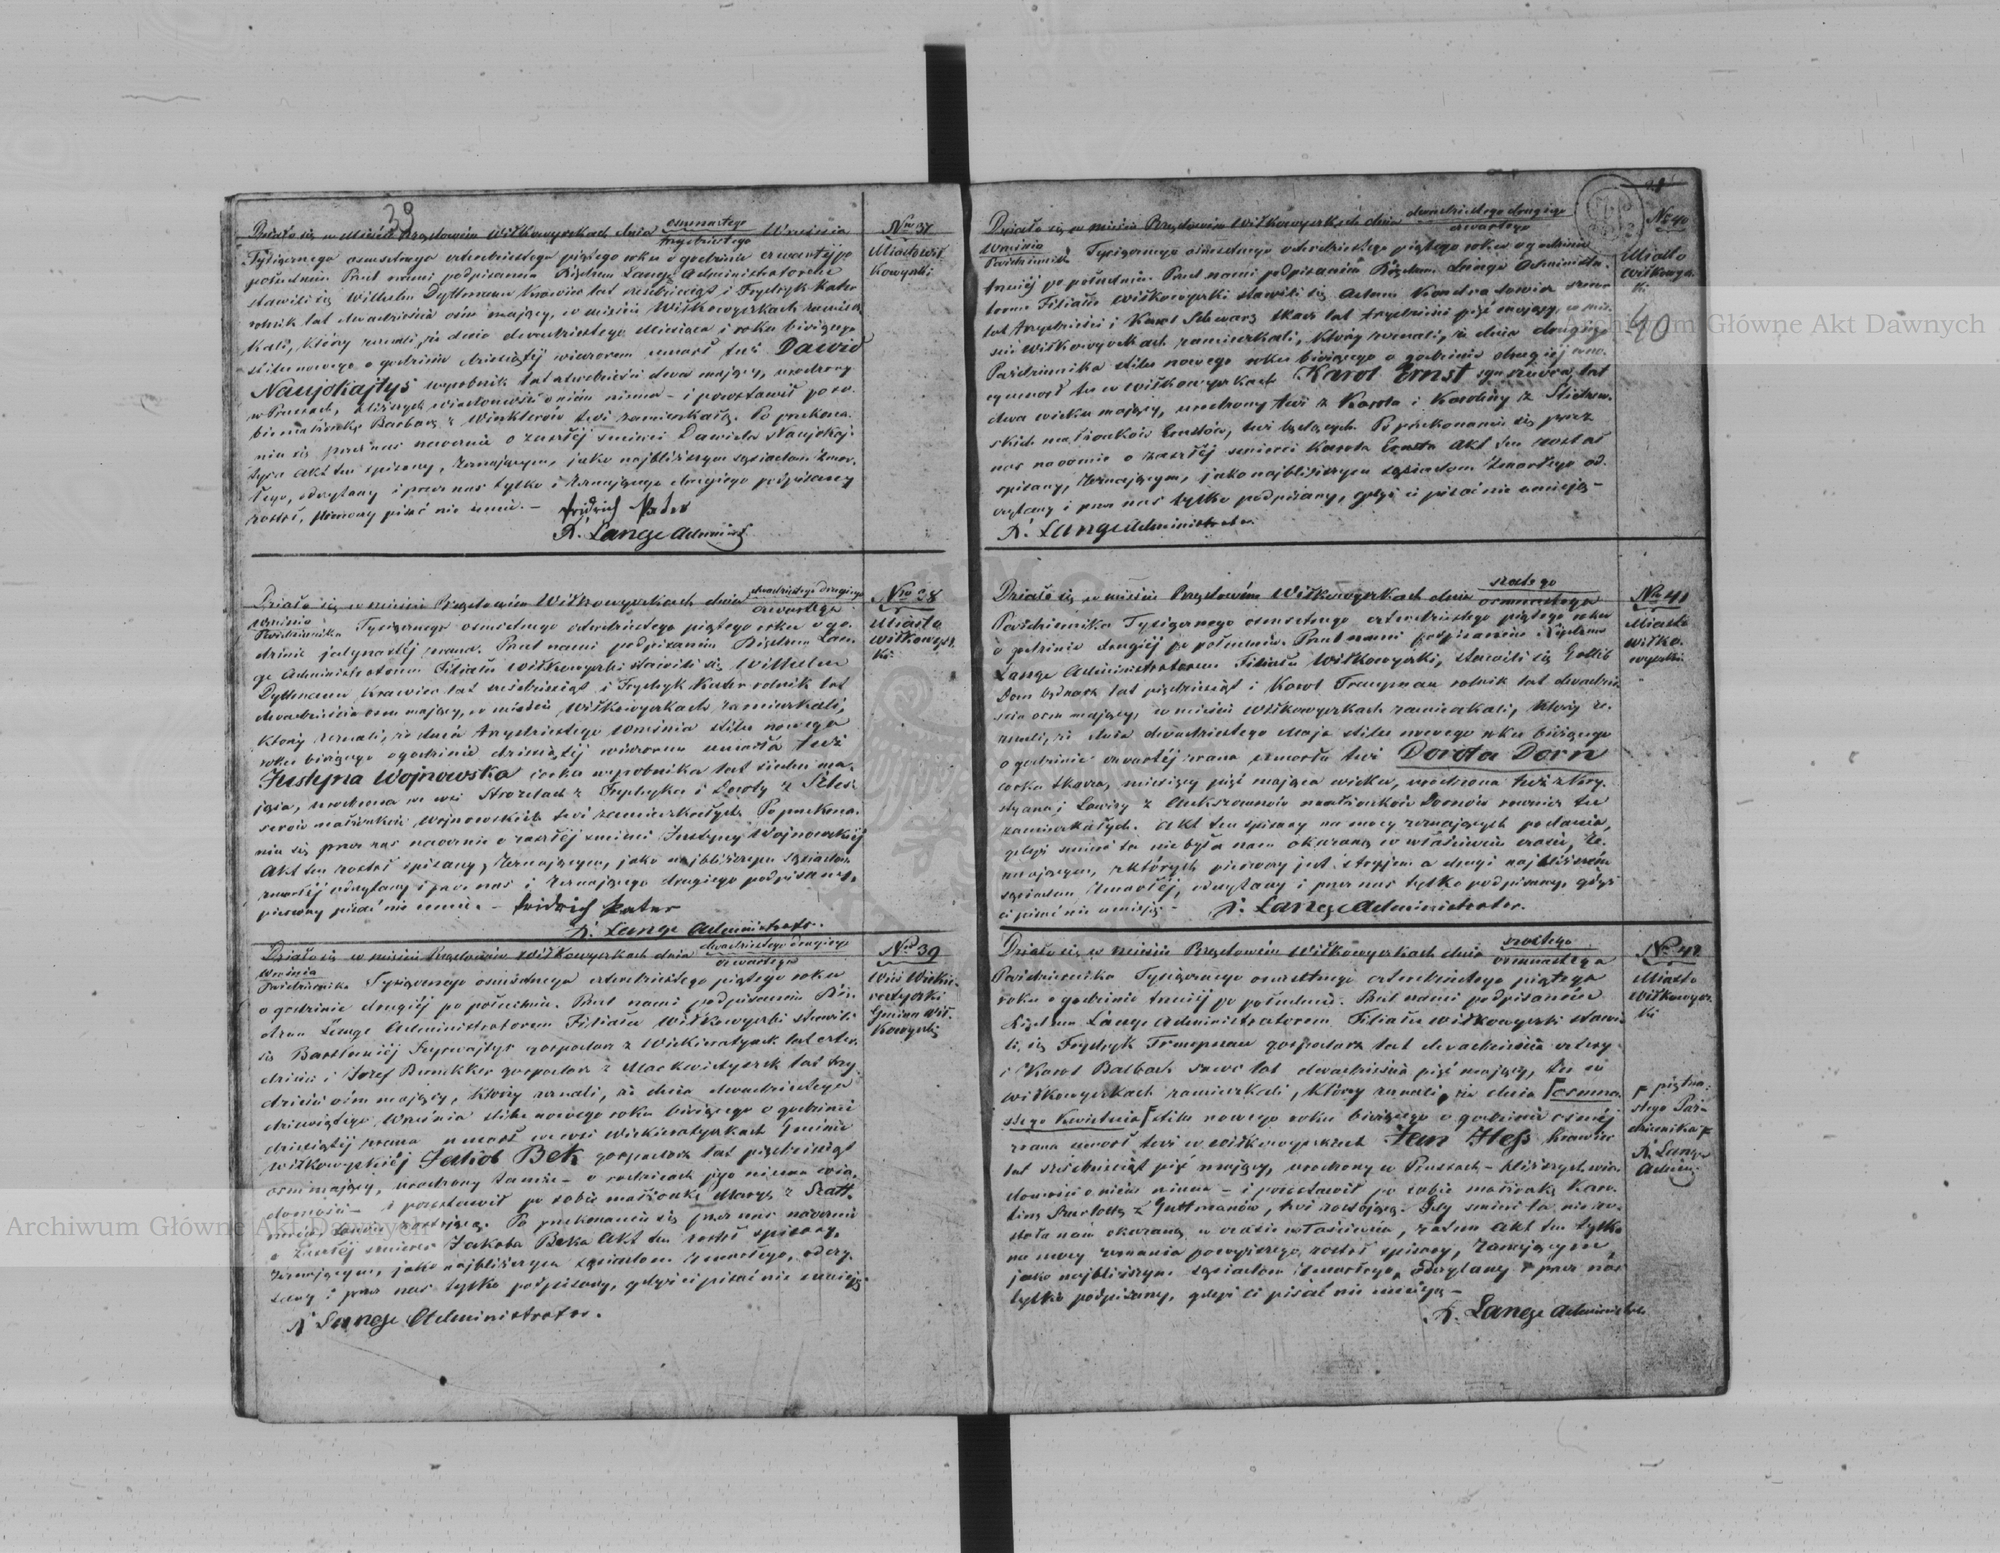 39
Działo się w Mieście Rządowém Wiłkowyszkach dnia osmnastego / trzydziestego Września
Tysiącznego osmsetnego czterdziestego piątego roku o godzinie czwartéj po
południu. Przed nami podpisanem Księdzem Lange Administratorem
stawili się Wilhelm Dyttmann Krawiec lat sześćdziesiąt i Frydryk Kater
rolnik lat dwadzieścia ośm mający, w mieście Wiłkowyszkach zamiesz
kali, którzy zeznali, że dnia dwudziestego Miesiąca i roku bieżącego
stilu nowego o godzinie dziesiątéj wieczorem umarł tuż Dawid
Naujokajtys wyrobnik lat czterdzieści dwa mający, urodzony
w Prusach, bliższych wiadomości o nim niema – i pozostawił po so
bie małżonkę Barbarę z Winklerów tuż zamieszkałą. Po przekona
niu się przez nas naocznie o zaszłéj śmierci Dawida Naujokaj
tysa Akt ten spisany, Zeznającym, jako najbliższym sąsiadom Zmar
łego, odczytany i przez nas tylko i Zeznającego drugiego podpisany
został, pierwszy pisać nie umie. – fridrich Kater
R. Lange Administ
No 37
Miasto Wił
kowyszki
Działo się w mieście Rządowém Wiłkowyszkach dnia dwudziestego drugiego / czwartego
Września / Października Tysiącznego osmsetnego czterdziestego piątego roku o go
dzinie jedynastéj zrana. Przed nami podpisanem Księdzem Lan
ge Administratorem Filiału Wiłkowyszki stawili się Wilhelm
Dyttmann Krawiec lat sześćdziesiąt i Frydryk Kater rolnik lat
dwadzieścia ośm mający, w mieście Wiłkowyszkach zamieszkali,
którzy zeznali, że dnia trzydziestego Września stilu nowego
roku bieżącego o godzinie dziesiątéj wieczorem umarła tuż
Justyna Wojnowska córka wyrobnika lat siedm ma
jąca, urodzona we wsi z Frydryka i z
małżonków Wojnowskich tuż zamieszkałych. Po przekona
niu się przez nas naocznie o zaszłéj śmierci Justyny Wojnowskiéj
Akt ten został spisany, Zeznającym, jako najbliższym sąsiadom
zmarłéj odczytany i przez nas i Zeznającego drugiego podpisany,
pierwszy pisać nie umie. – fridrich Kater
R. Lange Administrator.
No 38
Miasto
Wiłkowysz
ki
Działo się w mieście Rządowém Wiłkowyszkach dnia dwudziestego drugiego / czwartego
Września / Października Tysiącznego osmsetnego czterdziestego piątego roku
o godzinie drugiéj po południu. Przed nami podpisanem Księ
dzem Lange Administratorem Filiału Wiłkowyszki stawili
się Bartłomiéj gospodarz z lat czter
dzieści i Jozef gospodarz z lat trzy
dzieści ośm mający, którzy zeznali, że dnia dwudziestego
dziewiątego Września stilu nowego roku bieżącego o godzinie
dziesiątéj zrana umarł we wsi Gminie
Wiłkowyskiéj Jakob Bek gospodarz lat pięćdziesiąt
ośm mający, urodzony tamże – o rodzicach jego niema wia
domości – i pozostawił po sobie małżonkę Maryę z
tamże zostającą. Po przekonaniu się przez nas naocznie
o zaszłéj śmierci Jakoba Beka Akt ten został spisany,
Zeznającym, jako najbliższym sąsiadom zmarłego, odczy
tany i przez nas tylko podpisany, gdyż ci pisać nie umieją
R. Lange Administrator.
No 39
Wieś
Gmina Wił
kowyszki
Działo się w mieście Rządowém Wiłkowyszkach dnia dwudziestego drugiego / czwartego
Września / Października Tysiącznego osmsetnego czterdziestego piątego roku o godzinie
trzeciéj po południu. Przed nami podpisanem Księdzem Lange Administra
torem Filiału Wiłkowyszki stawili się Adam Kondratowicz szewc
lat trzydzieści i Karol Schwarz tkacz lat trzydzieści pięć mający, w mie
ście Wiłkowyszkach zamieszkali, którzy zeznali, że dnia drugiego
Października stilu nowego roku bieżącego o godzinie drugiéj
umarł tu w Wiłkowyszkach Karol Ernst syn lat
dwa wieku mający, urodzony tuż z Karola i Karoliny z
małżonków Ernstów, tuż będących. Po przekonaniu się przez
nas naocznie o zaszłéj śmierci Karola Ernsta Akt ten został
spisany, Zeznającym, jako najbliższym sąsiadom Zmarłego od
czytany i przez nas tylko podpisany, gdyż ci pisać nie umieją –
R. Lange Administrator.
No 40
Miasto
Wiłkowysz
ki
40
Działo się w mieście Rządowém Wiłkowyszkach dnia szóstego / osmnastego
Października Tysiącznego osmsetnego czterdziestego piątego roku
o godzinie drugiéj po południu. Przed nami podpisanem Księdzem
Lange Administratorem Filiału Wiłkowyszki, stawili się Gotlib
Dorn bednarz lat pięćdziesiąt i Karol Trempnau rolnik lat dwadzie
ścia ośm mający, w mieście Wiłkowyszkach zamieszkali, którzy ze
znali, że dnia dwudziestego Maja stilu nowego roku bieżącego
o godzinie czwartéj zrana umarła tuż Dorota Dorn
córka tkacza, miesięcy pięć mająca wieku, urodzona tuż z Kry
styana i Lowizy z małżonków Dornów również tu
zamieszkałych. Akt ten spisany na mocy zeznających podania,
gdyż śmierć ta nie była nam okazana w właściwym czasie, Ze
znającym, z których pierwszy jest stryjem a drugi najbliższém
sąsiadem Zmarłéj, odczytany i przez nas tylko podpisany, gdyż
ci pisać nie umieją – R. Lange Administrator.
No 41
Miasto
Wiłko
wyszki
Działo się w mieście Rządowém Wiłkowyszkach dnia szóstego / osmnastego
Października Tysiącznego osmsetnego czterdziestego piątego
roku o godzinie trzeciéj po południu. Przed nami podpisanem
Księdzem Lange Administratorem Filiału Wiłkowyszki stawi
li się Frydryk Trempnau gospodarz lat dwadzieścia cztery
i Karol Balbach szewc lat dwadzieścia pięć mający, tu w
Wiłkowyszkach zamieszkali, którzy zeznali, że dnia osmna
stego Kwietnia stilu nowego roku bieżącego o godzinie ósméj
zrana umarł tuż w Wiłkowyszkach Jan Hess krawiec
lat sześćdziesiąt pięć mający, urodzony w Prusach – bliższych wia
domości o niem niema – i pozostawił po sobie małżonkę Karo
linę Szarlottę z Guttmanów, tuż zostającą. Gdy śmierć ta nie zo
stała nam okazaną w czasie właściwém, zatem Akt ten tylko
na mocy zeznania powyższego został spisany, Zeznającym,
jako najbliższym sąsiadom Zmarłego, odczytany i przez nas
tylko podpisany, gdyż ci pisać nie umieją –
R. Lange Administrator
No 42
Miasto
Wiłkowysz
ki
piętna
stego Paź
dziernika
R. Lange
Admin
Archiwum Główne Akt Dawnych
Archiwum Główne Akt Dawnych